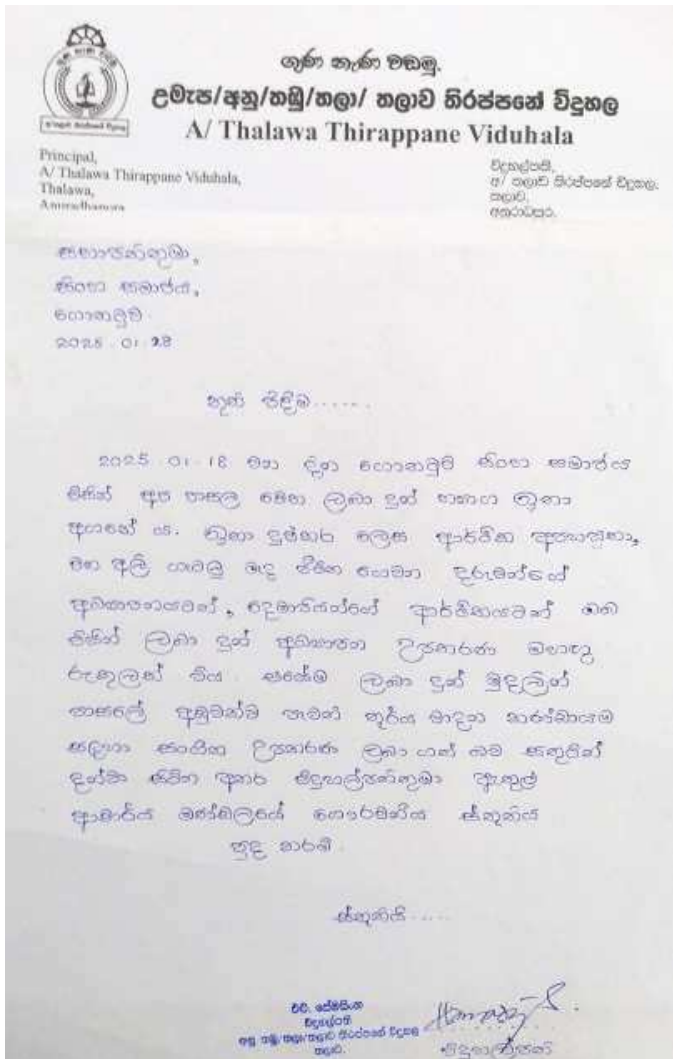 ගුණ නැණ වඩමු.
උමැප/අනු/තඹු/තලා/ තලාව තිරප්පනේ විදුහල
A/ Thalawa Thirappane Viduhala
Principal,
A/ Thalawa Thirappane Viduhala,
Thalawa,
Anuradhapura
විදුහල්පති,
අ/ තලාව තිරප්පනේ විදුහල,
තලාව,
අනුරාධපුර.
සභාපතිතුමා,
සිංහ සමාජය,
ගොනමුව.
2025.01.28
තුති පිදීම......
2025.01.18 වන දින ගොනමුව සිංහ සමාජය
විසින් අප පාසල වෙත ලබා දුන් ත්‍යාග
අගනේ ය. දුෂ්කර ලෙස ආර්ථික
වන අලි ගැටලු මැද ජීවත වෙන දරුවන්ගේ
අධ්‍යාපනයටත්, දෙමාපියන්ගේ ආර්ථිකයටත් ඔබ
විසින් ලබා දුන් අධ්‍යාපන උපකරණ මහඟු
රුකුලක් විය. එසේම ලබා දුන් මුදලින්
පාසලේ අලුතින් තූර්ය වාදන කණ්ඩායම
සඳහා සංගීත උපකරණ ලබා ගත් බව සතුටින්
දන්වා සිටින අතර විදුහල්පතිතුමා ඇතුළු
ආචාර්ය මණ්ඩලයේ ගෞරවනීය ස්තූතිය
පුද කරමි.
ස්තූතියි.....
එච්. ප්‍රේමසිංහ
විදුහල්පති
අනු/තඹු/තලා/තලාව තිරප්පනේ විදුහල
තලාව.
විදුහල්පති